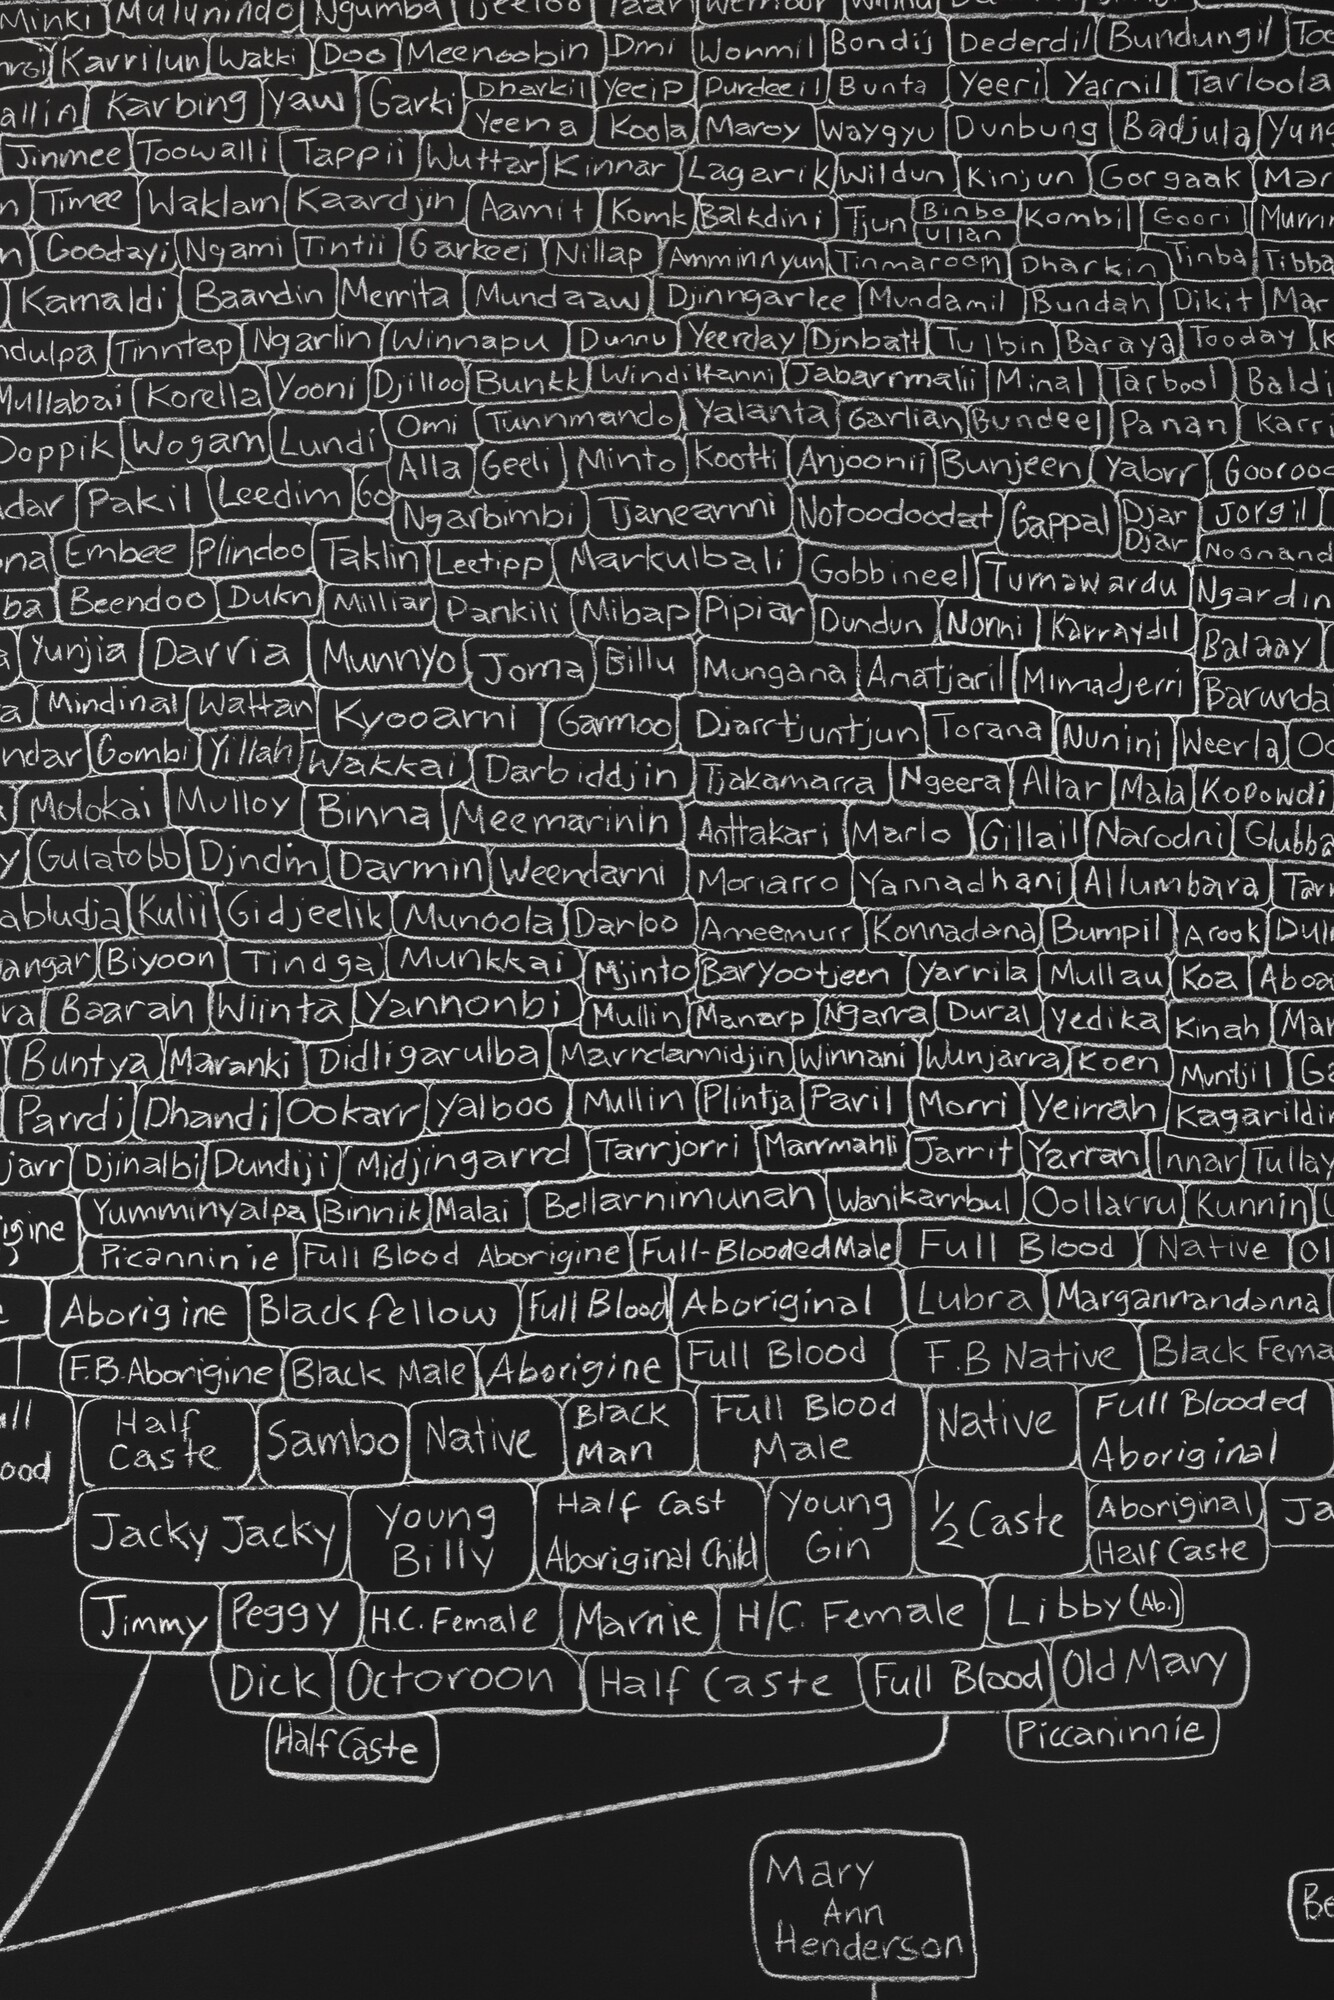 Minki Mulunindo Ngumba
Karrilun Wakki Doo Meenoobin Dmi Wonmil Bondij Dederdil Bundungil
Karbing Yaw Garki Dharkil Yeeip Purdeeil Bunta Yeeri Yarnil Tarloola
Yeena Koola Maroy Waygyu Dunbung Badjula
Jinmee Toowalli Tappii Wuttar Kinnar Lagarik Wildun Kinjun Gorgaak
Timee Waklam Kaardjin Aamit Komk Balkdini Tjun Binbo Kombil Goori
ullan
Goodayi Ngami Tintii Garkeei Nillap Amminnyun Tinmaroom Dharkin Tinba
Kamaldi Baandin Merrita Mundaaw Djinngarlee Mundamil Bundah Dikit
Tinntap Ngarlin Winnapu Dunnu Yeerday Djnbatt Tulbin Baraya Tooday
Mullabai Korella Yooni Djilloo Bunkk Jabarrmalii Minal Tarbool
Doppik Wogam Lundi Omi Tunnmando Yalanta Garlian Bundeel Panan
Alla Geeli Minto Kootti Anjoonii Bunjeen Yalorr
Pakil Leedim Go Ngarbimbi Tjanearnni Notoodoodat Gappal Djar Jorgil
Djar
Embee Plindoo Taklin Leetipp Markulbali Gobbineel Turnawardu
Beendoo Dukn Milliar Pankili Mibap Pipiar Dundun Nonni Karraydil
Yunjia Darria Munnyo Joma Billu Mungana Anatjaril Mimadjerri Balaay
Mindinal Wattan Kyooarni Gamoo Djarrtjuntjun Torana Nunini Weerla
Gombi Yillah Wakkai Darbiddjin Tjakamarra Ngeera Allar Mala Kopowdi
Molokai Mulloy Binna Meemarinin Anttakari Marlo Gillail Narodni
Gulatobb Djndin Darmin Weendarni Moriarro Yannadhani Allumbara
Kulii Gidjeelik Munoola Darloo Ameemurr Konnadana Bumpil Arook
Biyoon Tindga Munkkai Mjinto BarYootjeen Yarrila Mullau Koa
Baarah Wiinta Yannonbi Mullin Manarp Ngarra Dural Yedika Kinah
Buntya Maranki Didligarulba Marrdannidjin Winnani Wunjarra Koen Muntjil
Parrdi Dhandi Ookarr Yalboo Mullin Plintja Paril Morri Yeirrah
Djinalbi Dundiji Midjingarrd Tarrjorri Marrmahli Jarrit Yarran Innar
Yumminyalpa Binnik Malai Bellarnimunah Wanikarrbul Oollarru Kunnin
Picanninie Full Blood Aborigine Full-Blooded Male Full Blood Native
Aborigine Blackfellow Full Blood Aboriginal Lubra Margannandanna
F.B. Aborigine Black Male Aborigine Full Blood F.B Native Black
Half Caste Sambo Native Black Man Full Blood Male Native Full Blooded Aboriginal
Jacky Jacky Young Billy Half Cast Aboriginal Child Young Gin ½ Caste Aboriginal
Half Caste
Jimmy Peggy H.C. Female Marnie H/C. Female Libby (Ab.)
Dick Octoroon Half Caste Full Blood Old Mary
Half Caste Piccaninnie
Mary
Ann
Henderson